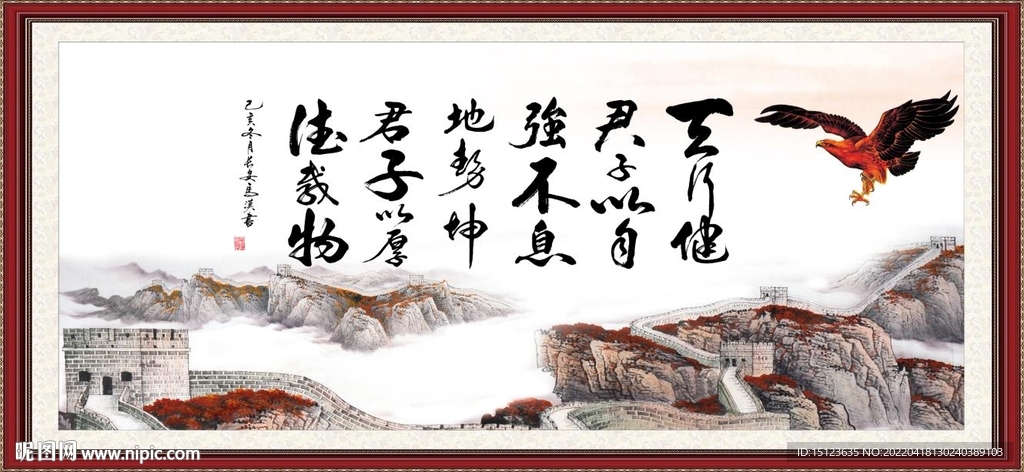 天行健
君子以自
強不息
地势坤
君子以厚
德載物
己亥冬月长安馬漢書
昵图网 www.nipic.com
ID:15123635 NO:20220418130240389103